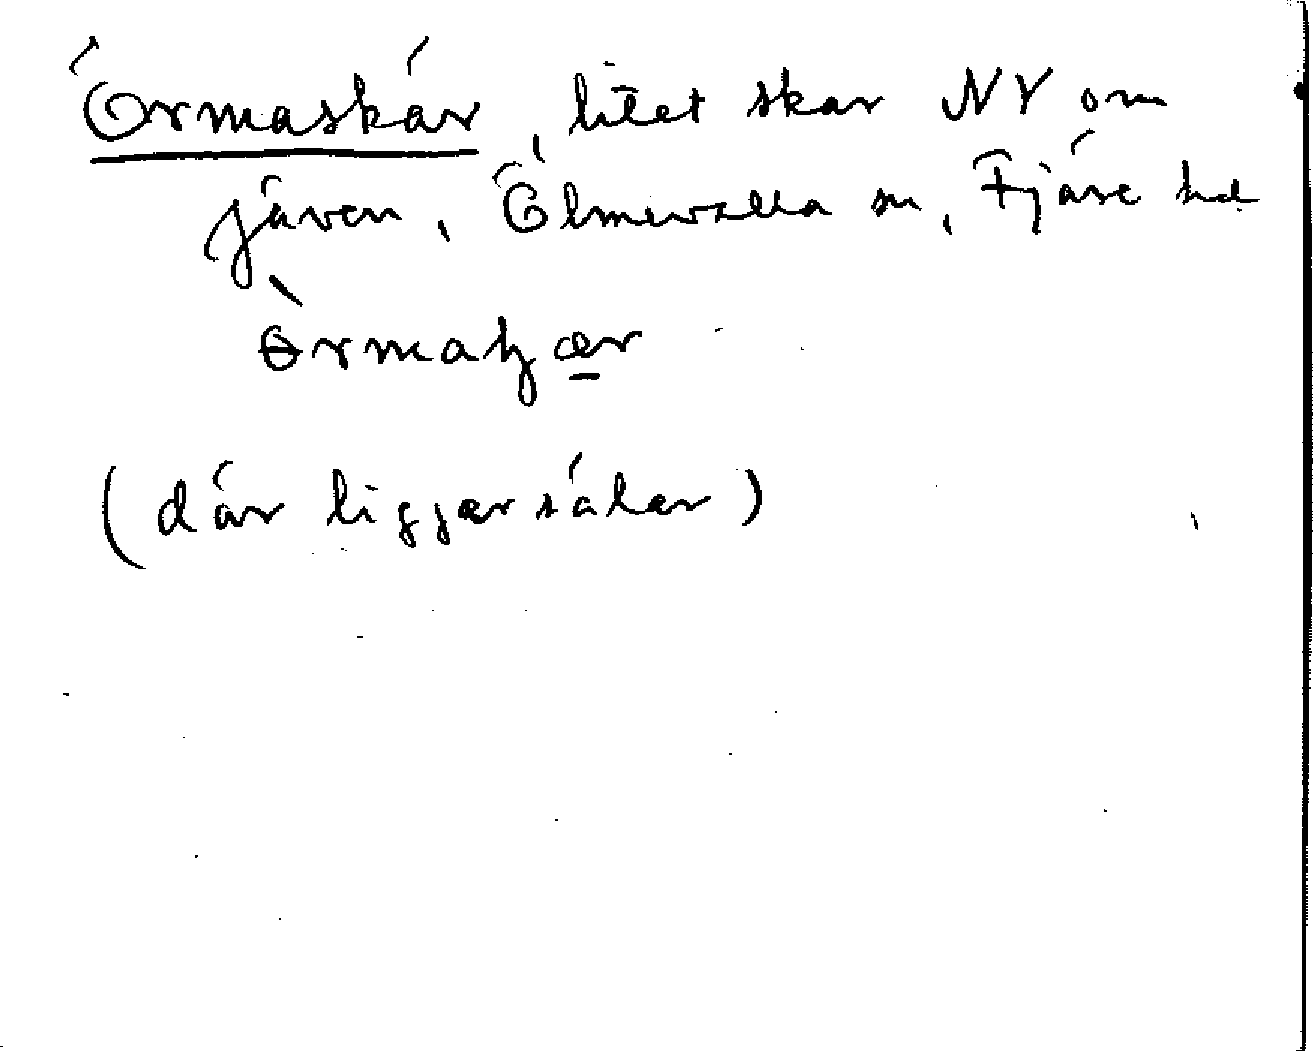 Ormaskär, litet skär NV om
Jäven, Ölmevalla sn, Fjäre hd
(där ligger sälar)